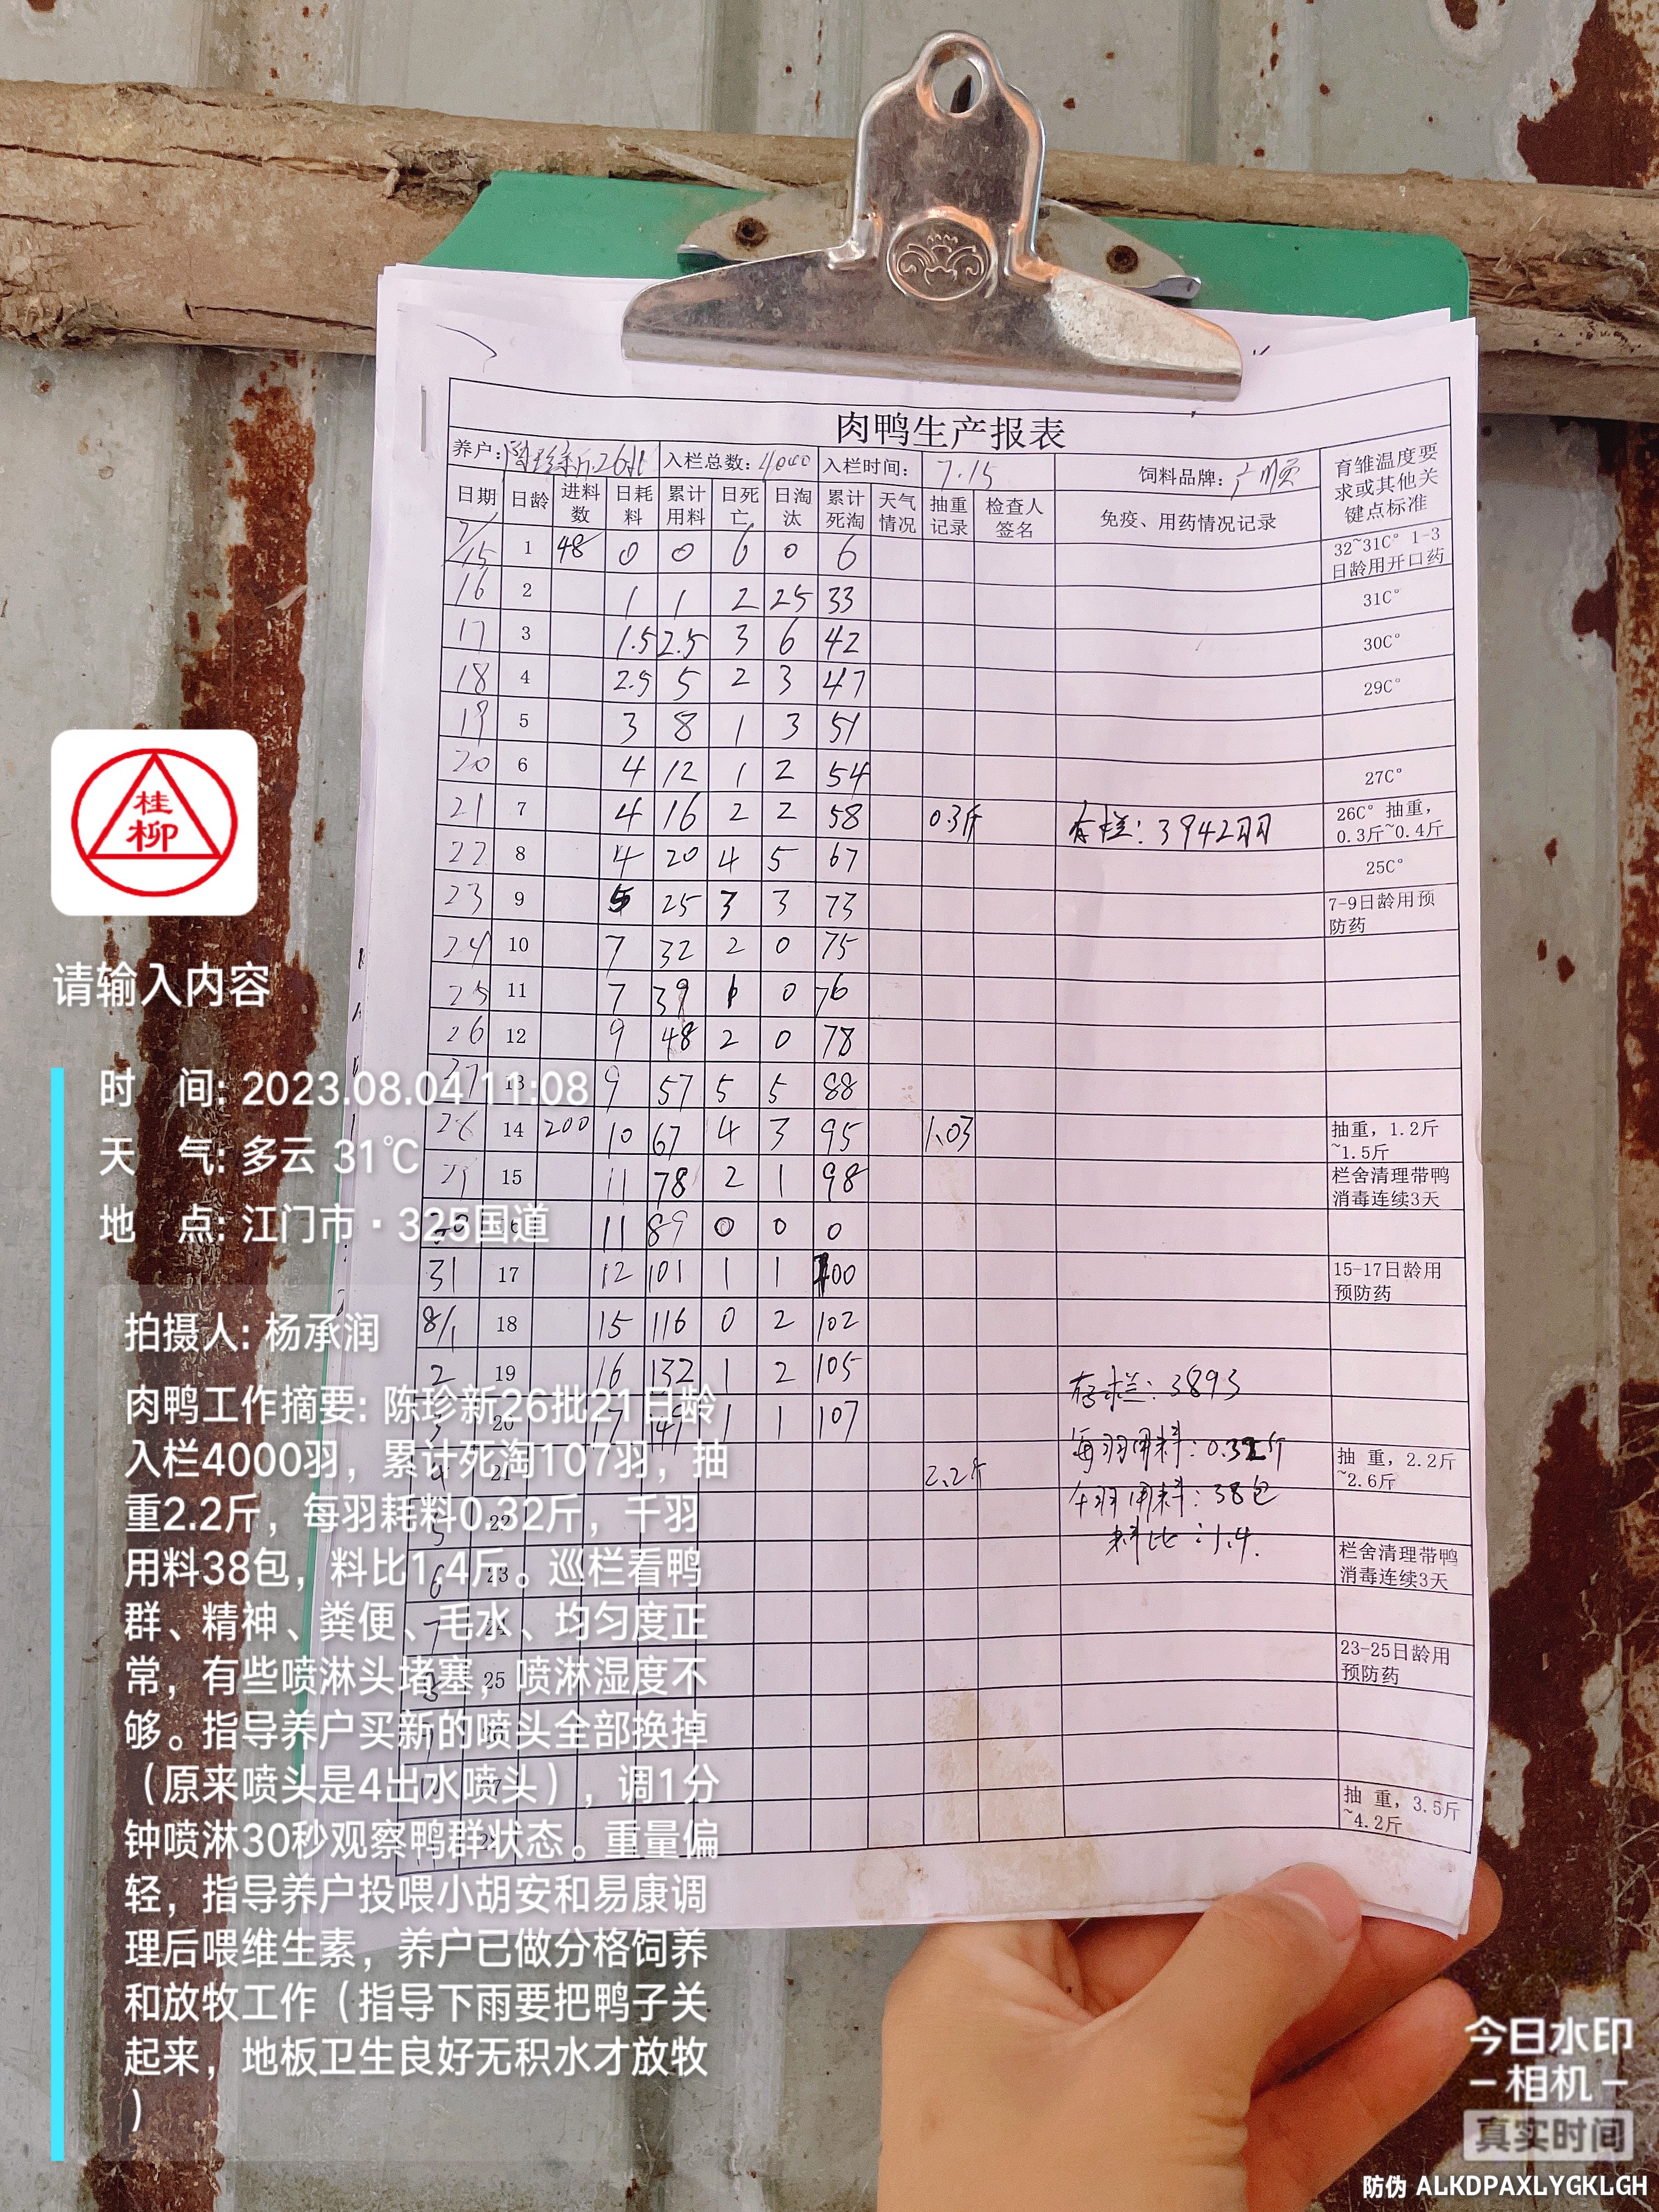 肉鸭生产报表
养户: 陈珍新26批 入栏总数: 4000 入栏时间: 7.15 饲料品牌: 广顺 育雏温度要求或其他关键点标准
日期 日龄 进料数 日耗料 累计用料 日死亡 日淘汰 累计死淘 天气情况 抽重记录 检查人签名 免疫、用药情况记录
7/15 1 48 0 0 6 0 6 32~31C° 1-3日龄用开口药
16 2 1 1 2 25 33 31C°
17 3 1.5 2.5 3 6 42 30C°
18 4 2.5 5 2 3 47 29C°
19 5 3 8 1 3 51
20 6 4 12 1 2 54 27C°
21 7 4 16 2 2 58 0.3斤 存栏: 3942羽 26C° 抽重, 0.3斤~0.4斤
22 8 4 20 4 5 67 25C°
23 9 5 25 3 3 73 7-9日龄用预防药
24 10 7 32 2 0 75
25 11 7 39 1 0 76
26 12 9 48 2 0 78
27 13 9 57 5 5 88
28 14 200 10 67 4 3 95 1.03 抽重, 1.2斤~1.5斤
15 11 78 2 1 98 栏舍清理带鸭消毒连续3天
16 11 89 0 0 0
31 17 12 101 1 1 100 15-17日龄用预防药
8/1 18 15 116 0 2 102
2 19 16 132 1 2 105 存栏: 3893
3 20 17 149 1 1 107 每羽用料: 0.32斤
4 21 2.2斤 千羽用料: 38包 抽 重, 2.2斤~2.6斤
5 22 料比: 1.4.
6 23 栏舍清理带鸭消毒连续3天
7 24
8 25 23-25日龄用预防药
26
27
28 抽 重, 3.5斤~4.2斤
桂
柳
请输入内容
时 间: 2023.08.04 11:08
天 气: 多云 31℃
地 点: 江门市·325国道
拍摄人: 杨承润
肉鸭工作摘要: 陈珍新26批21日龄
入栏4000羽，累计死淘107羽，抽
重2.2斤，每羽耗料0.32斤，千羽
用料38包，料比1.4斤。巡栏看鸭
群、精神、粪便、毛水、均匀度正
常，有些喷淋头堵塞，喷淋湿度不
够。指导养户买新的喷头全部换掉
（原来喷头是4出水喷头），调1分
钟喷淋30秒观察鸭群状态。重量偏
轻，指导养户投喂小胡安和易康调
理后喂维生素，养户已做分格饲养
和放牧工作（指导下雨要把鸭子关
起来，地板卫生良好无积水才放牧
）
今日水印
-相机-
真实时间
防伪 ALKDPAXLYGKLGH